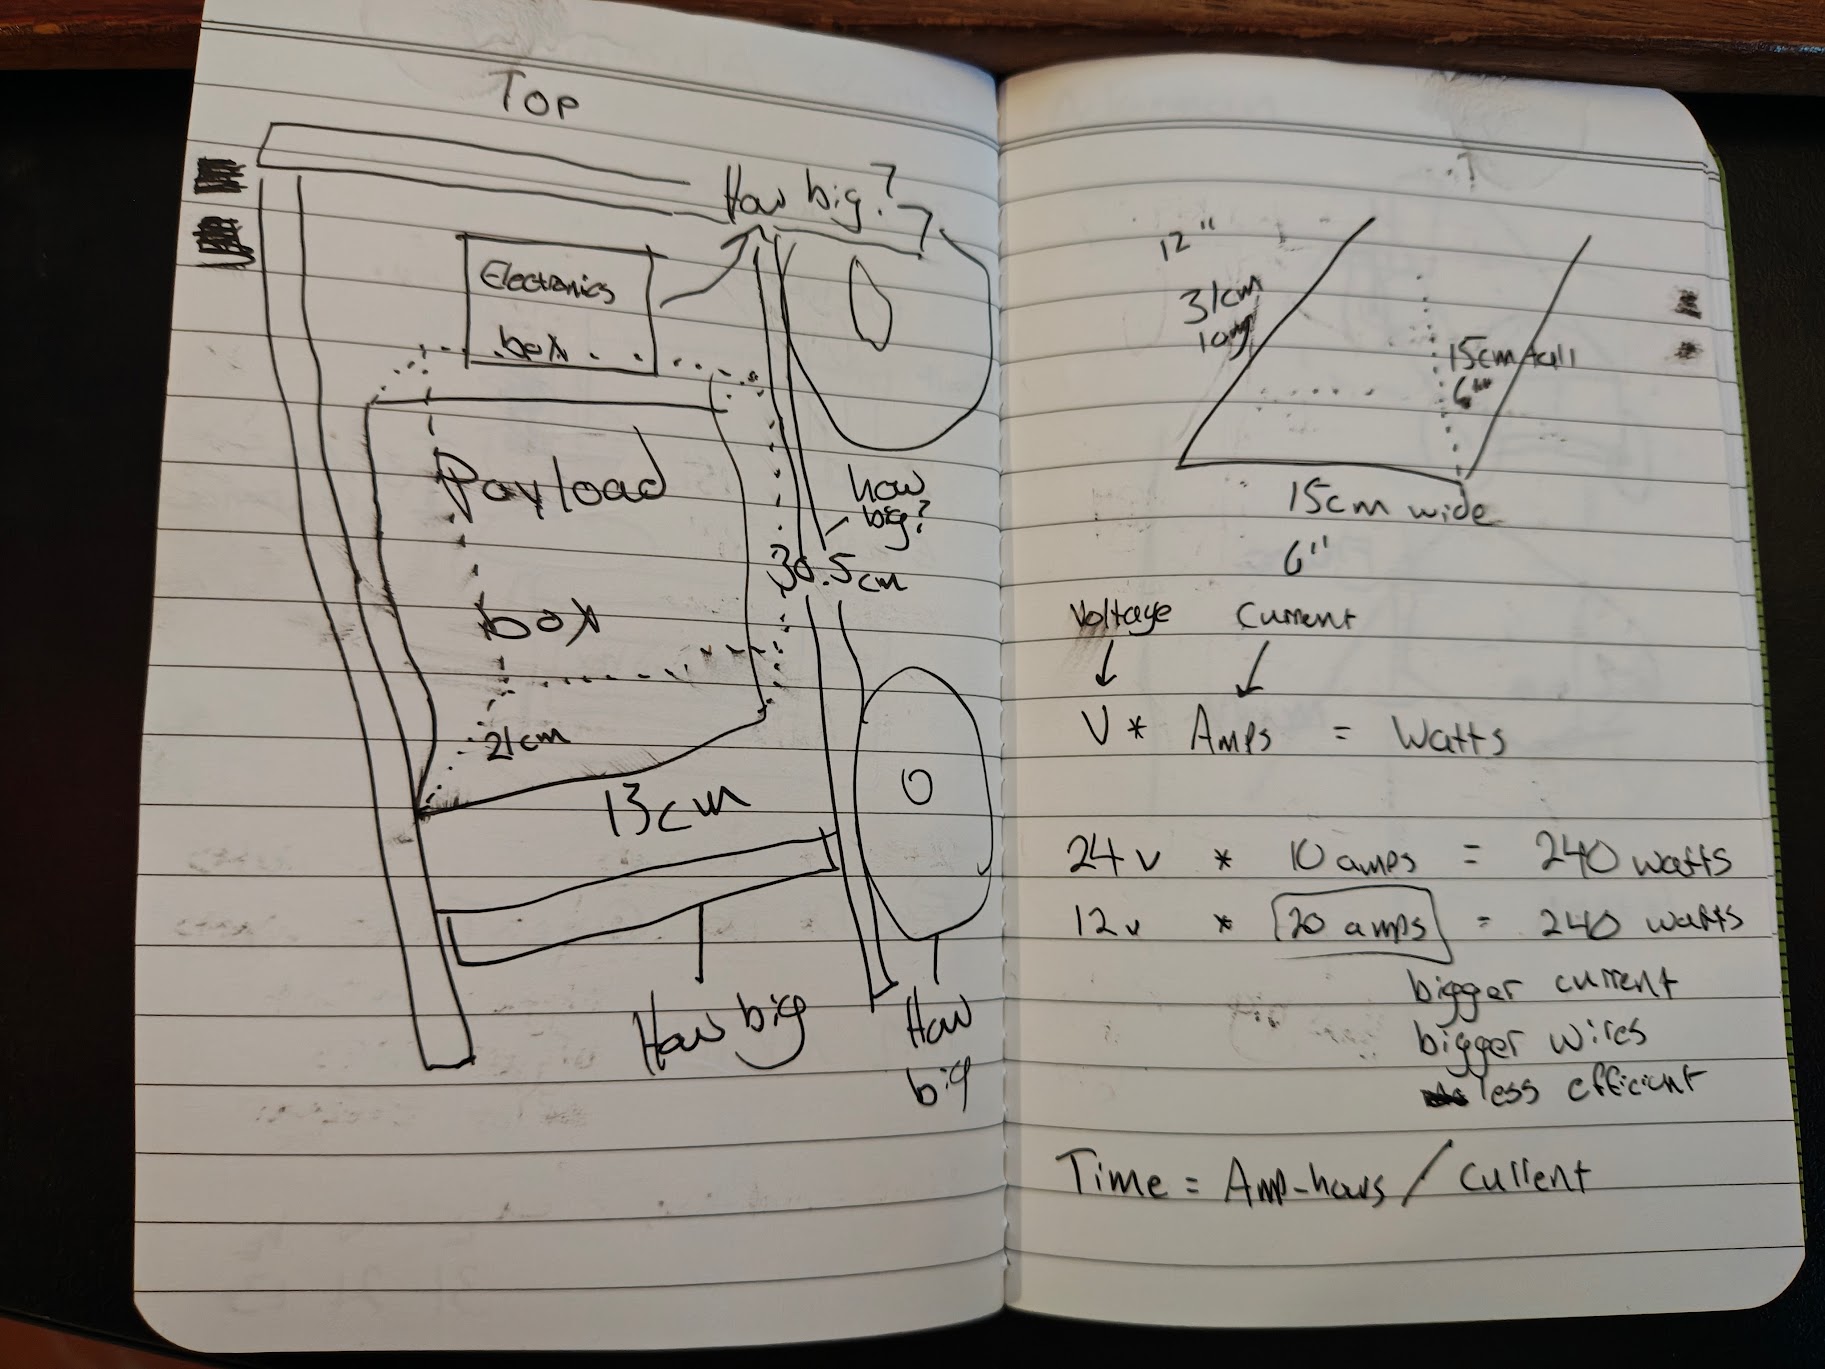 Top
How big?
Electronics
box
Payload
how
big?
30.5cm
box
21cm
13cm
How big
How
big
12"
31cm
long
15cm tall
6"
15cm wide
6"
Voltage Current
V * Amps = Watts
24v * 10 amps = 240 watts
12v * 20 amps = 240 watts
bigger current
bigger wires
less efficient
Time = Amp-hours / current